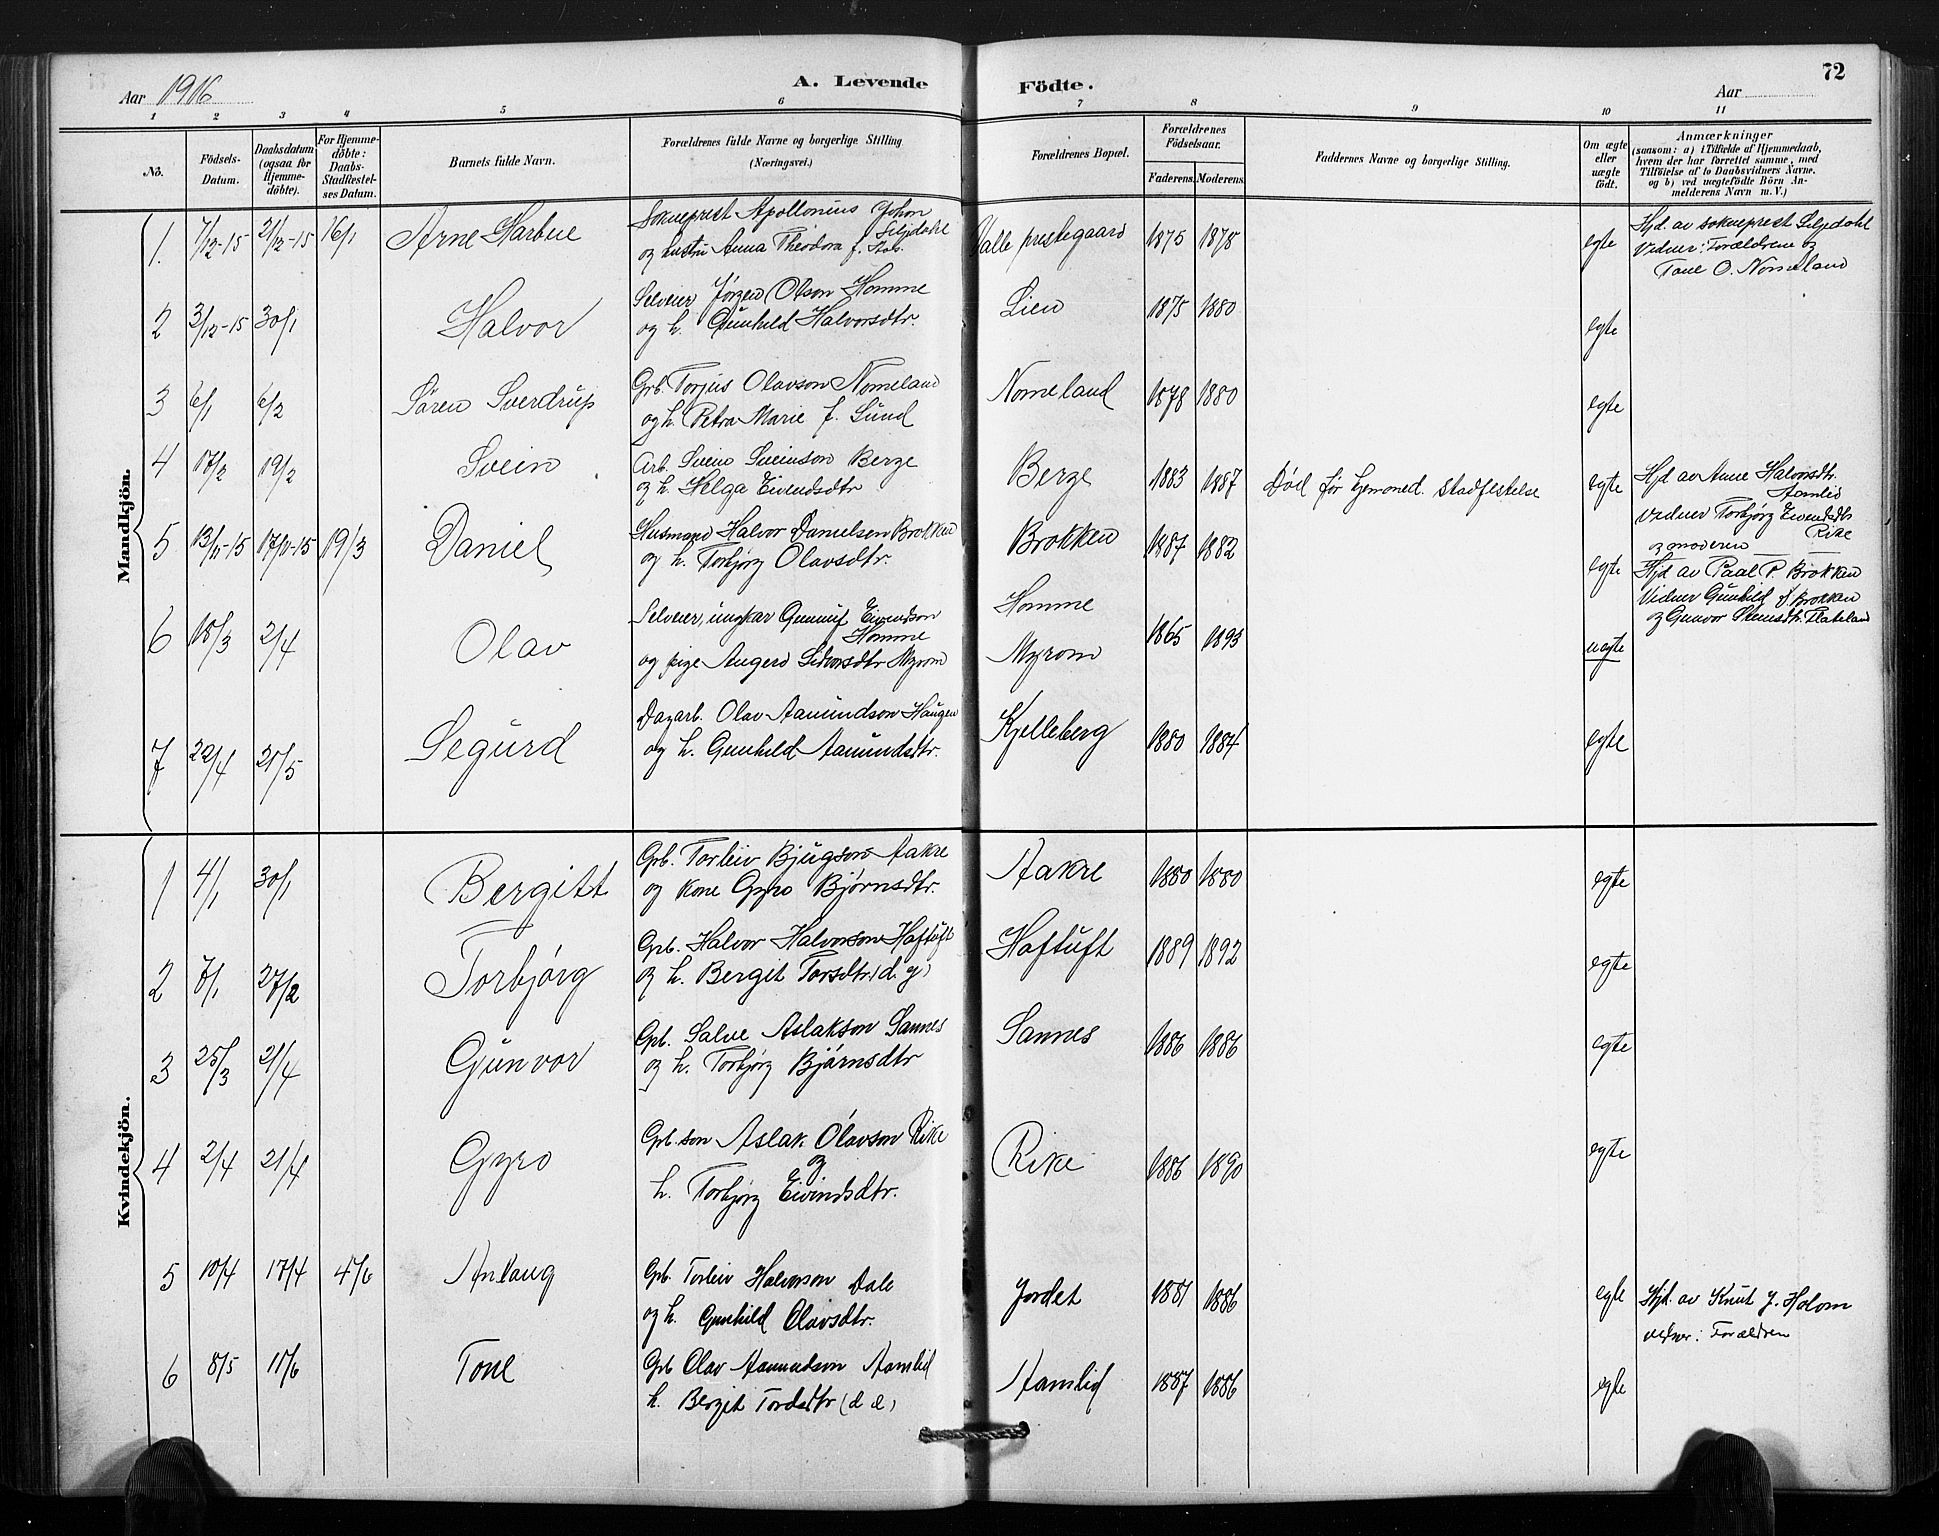 Aar 1916
A. Levende Födte.
72
Aar
1 2 3 4 5 6 7 8 9 10 11
No.
Födsels-Datum.
Daabsdatum (ogsaa for Hjemme-döbte).
For Hjemme-döbte: Daabs-Stadfæstel-ses Datum.
Barnets fulde Navn.
Forældrenes fulde Navne og borgerlige Stilling (Næringsvei.)
Forældrenes Bopæl.
Forældrenes Födselsaar.
Faderens. Moderens.
Faddernes Navne og borgerlige Stilling.
Om ægte eller uægte födt.
Anmærkninger
(saasom: a) i Tilfælde af Hjemmedaab, hvem der har forrettet samme, med Tilföielse af to Daabsvidners Navne, og b) ved uægtefödte Börn An-melderens Navn m. V.)
Mandkjön.
1. 7/12-15 21/12-15 16/1 Arne Harbue Sokneprest Apollonius Johan Liljedahl
og hustru Anna Theodora f. Aas. Valle prestegaard 1875 1878 egte Hjd. av sokneprest Liljedahl
Vidner: Forældrene og
Tone O. Nomeland
2 3/12-15 30/1 Halvor Selveier Jørgen Olson Homme
og h. Gunhild Halvorsdtr. Lien 1875 1880 egte
3 6/1 6/2 Søren Sverdrup Grb. Torjus Olavson Nomeland
og h. Petra Marie f. Lund Nomeland 1878 1880 egte
4 17/2 19/2 Svein Arb. Svein Sveinson Berge
og h. Helga Eivendsdtr Berge 1883 1887 Død før hjemmed. stadfestelse egte Hjd av Anne Halvorsdtr.
Aamlid
Vidner Torbjørg Eivendsdtr
Rike
og moderen
5 13/11-15 17/11-15 19/3 Daniel Husmand Halvor Danielsen Brokken
og h. Torbjørg Olavsdtr. Brokken 1887 1882 egte Hjd av Paal P. Brokken
Vidner Gunhild Brokken
og Gunvor Steinsdtr. Flateland
6 18/3 2/4 Olav Selveier, ungkar Gunnuf Eivendson
Homme
og pige Angerd Sidvorsdtr Myrom Homme
Myrom 1865 1893 uegte
7 22/4 21/5 Segurd Dagarb. Olav Aamundson Haugen
og h. Gunhild Aamundsdtr. Kjelleberg 1880 1884 egte
Kvindekjön.
1 4/1 30/1 Bergitt Grb. Torleiv Bjugson Aakre
og kone Gyro Bjørnsdtr. Aakre 1880 1880 egte
2 7/1 27/2 Torbjørg Grb. Halvor Halvorson Haftuft
og h. Bergit Torsdtr. (d. y.) Haftuft 1889 1892 egte
3 25/3 21/4 Gunvor Grb. Salve Aslakson Sannes
og h. Torbjørg Bjørnsdtr Sannes 1886 1886 egte
4 2/4 21/4 Gyro Grb. son Aslak Olavson Rike
og
h. Torbjørg Eivindsdtr. Rike 1886 1890 egte
5 10/4 17/4 4/6 Anlaug Grb. Torleiv Halvorson Dale
og h. Gunhild Olavsdtr. Jordet 1881 1886 egte Hjd. av Knut J. Holom
vidner: Forældren
6 8/5 11/6 Tone Grb Olav Aamundson Aamlid
h. Bergit Tordsdtr (d e) Aamlid 1887 1886 egte